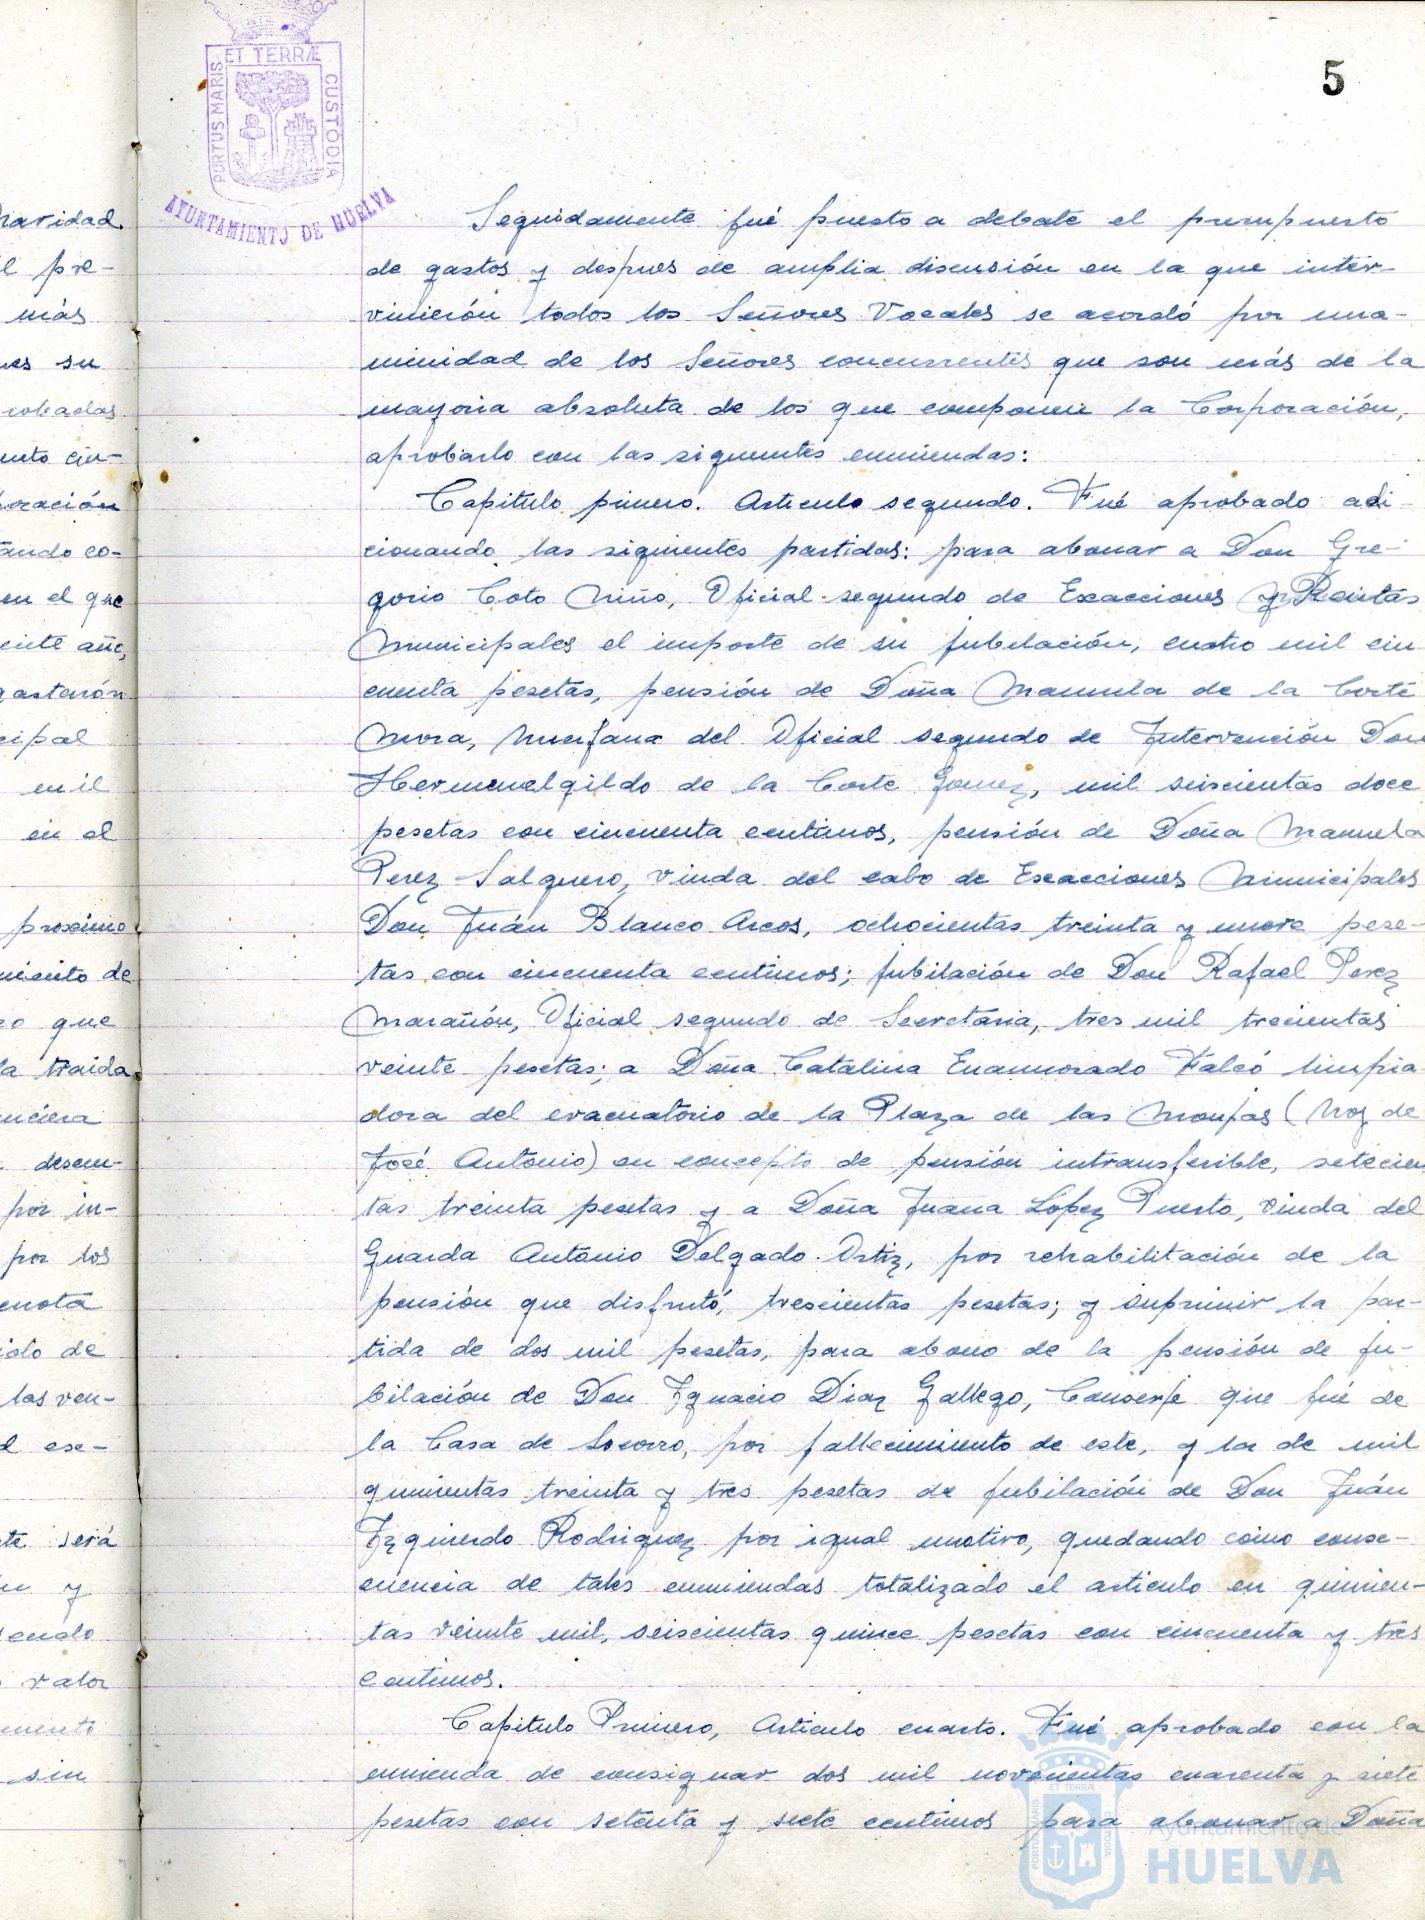 5
PORTUS MARIS ET TERRÆ CUSTODIA
AYUNTAMIENTO DE HUELVA
Seguidamente fué puesto a debate el presupuesto
de gastos y despues de amplia discusión en la que inter-
vinierón todos los Señores Vocales se acordó por una-
nimidad de los Señores concurrentes que son más de la
mayoria absoluta de los que componen la Corporación,
aprobarlo con las siguientes enmiendas:
Capitulo primero. Articulo segundo. Fué aprobado adi-
cionando las siguientes partidas: para abonar a Don Gre-
gorio Coto Niño, Oficial segundo de Exacciones y Rentas
Municipales el importe de su jubilación, cuatro mil cin-
cuenta pesetas, pensión de Doña Manuela de la Corte
Mora, huerfana del Oficial segundo de Intervención Don
Hermenelgildo de la Corte Gomez, mil seiscientas doce
pesetas con cincuenta centimos, pensión de Doña Manuela
Perez Salguero, viuda del cabo de Exacciones Municipales
Don Juán Blanco Arcos, ochocientas treinta y nueve pese-
tas con cincuenta centimos; jubilación de Don Rafael Perez
Marañón, Oficial segundo de Secretaria, tres mil trecientas
veinte pesetas; a Doña Catalina Enamorado Falcó limpia-
dora del evacuatorio de la Plaza de las Monjas (hoy de
José Antonio) en concepto de pensión intransferible, setecien
tas treinta pesetas y a Doña Juana López Puerto, viuda del
Guarda Antonio Delgado Ortiz, por rehabilitación de la
pensión que disfrutó, trescientas pesetas; y suprimir la par-
tida de dos mil pesetas, para abono de la pensión de ju-
bilación de Don Ignacio Diaz Gallego, Conserje que fué de
la Casa de Socorro, por fallecimiento de este, y la de mil
quinientas treinta y tres pesetas de jubilación de Don Juán
Izquierdo Rodriguez por igual motivo, quedando como conse-
cuencia de tales enmiendas totalizado el articulo en quinien-
tas veinte mil, seiscientas quince pesetas con cincuenta y tres
centimos.
Capitulo Primero, Articulo cuarto. Fué aprobado con la
enmienda de consignar dos mil novecientas cuarenta y siete
pesetas con setenta y siete centimos para abonar a Doña
Ayuntamiento de
HUELVA